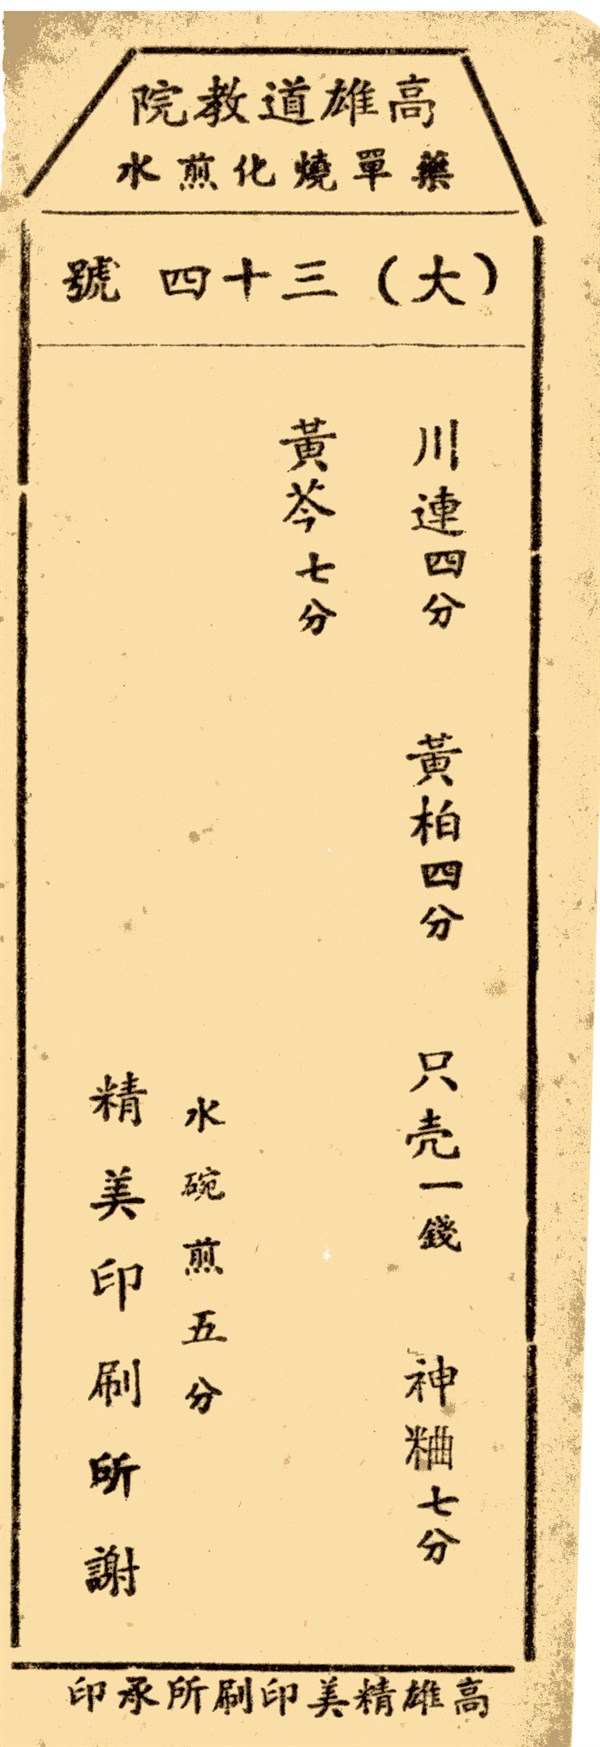 高雄道教院
藥單燒化煎水
(大)三十四 號
川連四分 黃柏四分 只壳一錢 神粬七分
黃芩七分
水碗煎五分
精美印刷所謝
高雄精美印刷所承印